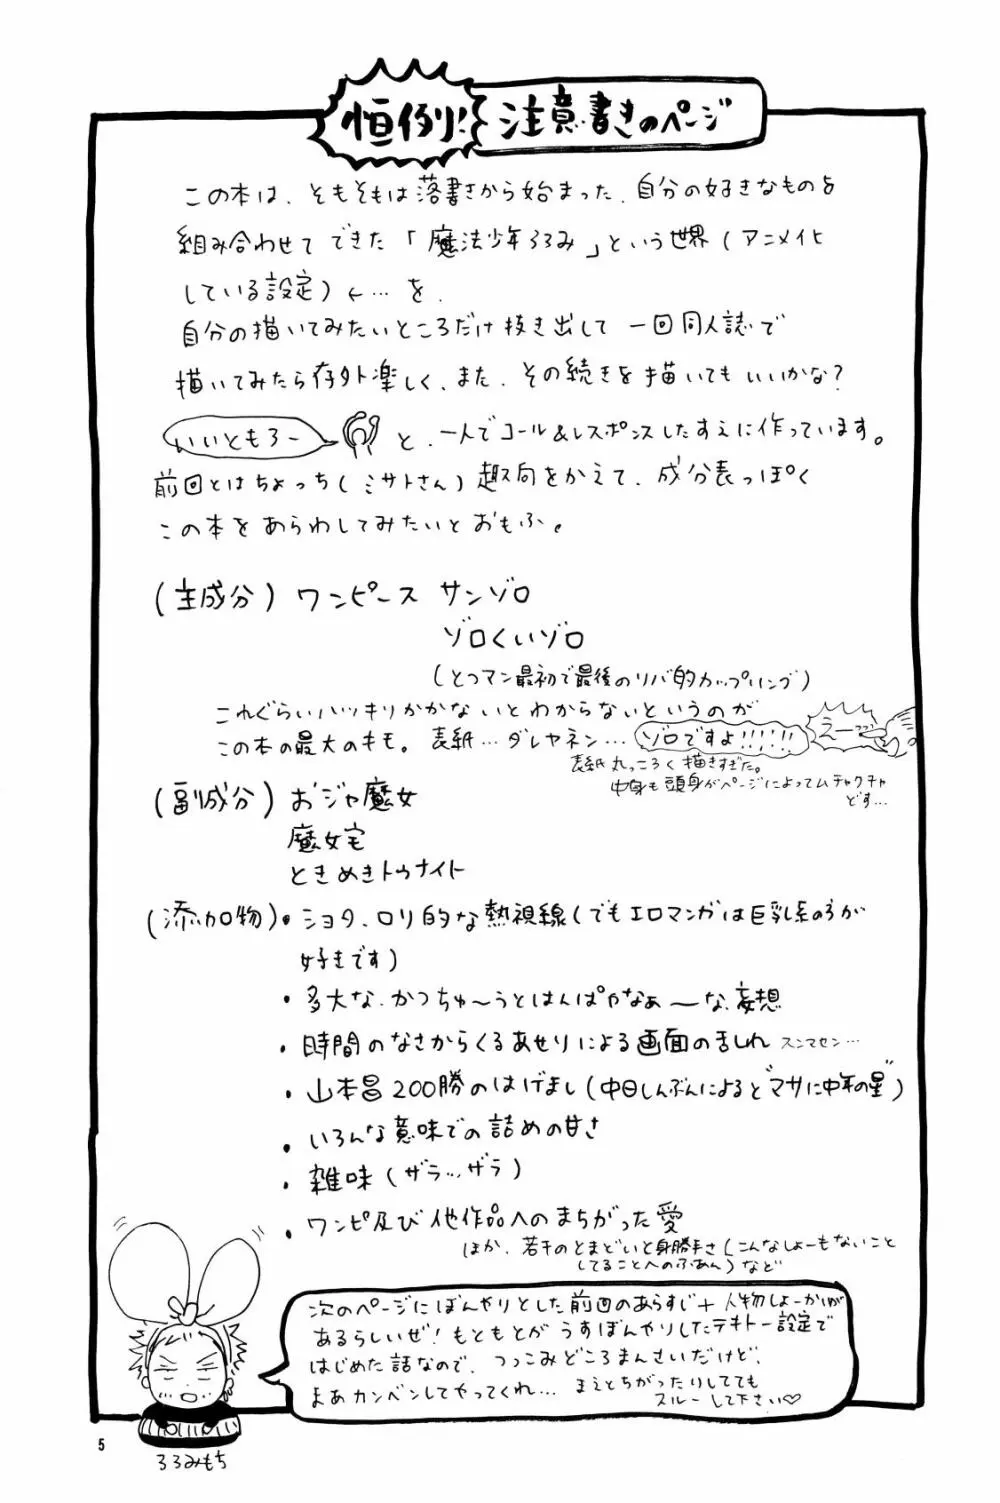 恒例!
注意書きのページ
この本は、そもそもは落書きから始まった、自分の好きなものを
組み合わせてできた「魔法少年ろろみ」という世界(アニメイヒ
している設定)←…を、
自分の描いてみたいところだけ抜き出して一回同人誌で
描いてみたら存外楽しく、また、その続きを描いてもいいかな?
いいともろー
と、一人でコール&レスポンスしたすえに作っています。
前回とはちょっち(ミサトさん)趣向をかえて、成分表っぽく
この本をあらわしてみたいとおもふ。
(主成分) ワンピース サンゾロ
ゾロくいゾロ
(とつマン最初で最後のリバ的カップリング)
これぐらいハッキリかかないとわからないというのが
この本の最大のキモ。表紙…ダレヤネン…
ゾロですよ!!!!!!
えーっっ
表紙丸っころく描きすぎた。
中身も頭身がページによってムチャクチャ
どす…
(副成分) おジャ魔女
魔女宅
ときめきトゥナイト
(添加物)・ショタ、ロリ的な熱視線(でもエロマンガは巨乳系の方が
好きです)
・多大な、かつちゅ〜うとはんぱやなぁ〜な、妄想
・時間のなさからくるあせりによる画面の乱れ スンマセン…
・山本昌200勝のはげまし(中日しんぶんによると"マサに中年の星")
・いろんな意味での詰めの甘さ
・雑味(ザラ…ザラ)
・ワンピ及び他作品へのまちがった愛
ほか、若干のとまどいと身勝手さ(こんなしょーもないこと
してることへのふあん)など
次のページにぼんやりとした前回のあらすじ+人物しょーかいが
あるらしいぜ!もともとがうすぼんやりしたテキトー設定で
はじめた話なので、つっこみどころまんさいだけど、
まあカンベンしてやってくれ… まえとちがったりしてても
スルーして下さい♡
ろろみもち
5